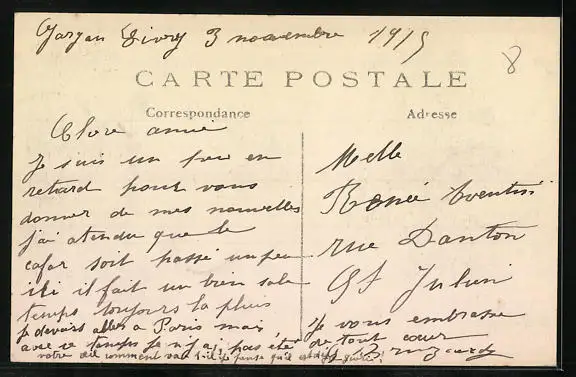 Gargan Livry 3 novembre 1915
8
CARTE POSTALE
Correspondance
Adresse
Chere amie
Je suis un peu en
retard pour vous
donner de mes nouvelles
j'ai atendu que le
cafar soit passé un peu
ici il fait un bien sale
temps toujours la pluie
je devais aller a Paris mais
avec ce temps je n'y ai pas été
votre œil comment vat-il je pense qu'il est guéri
Melle
Renée
rue Danton
St Julien
Je vous embrasse
de tout cœur